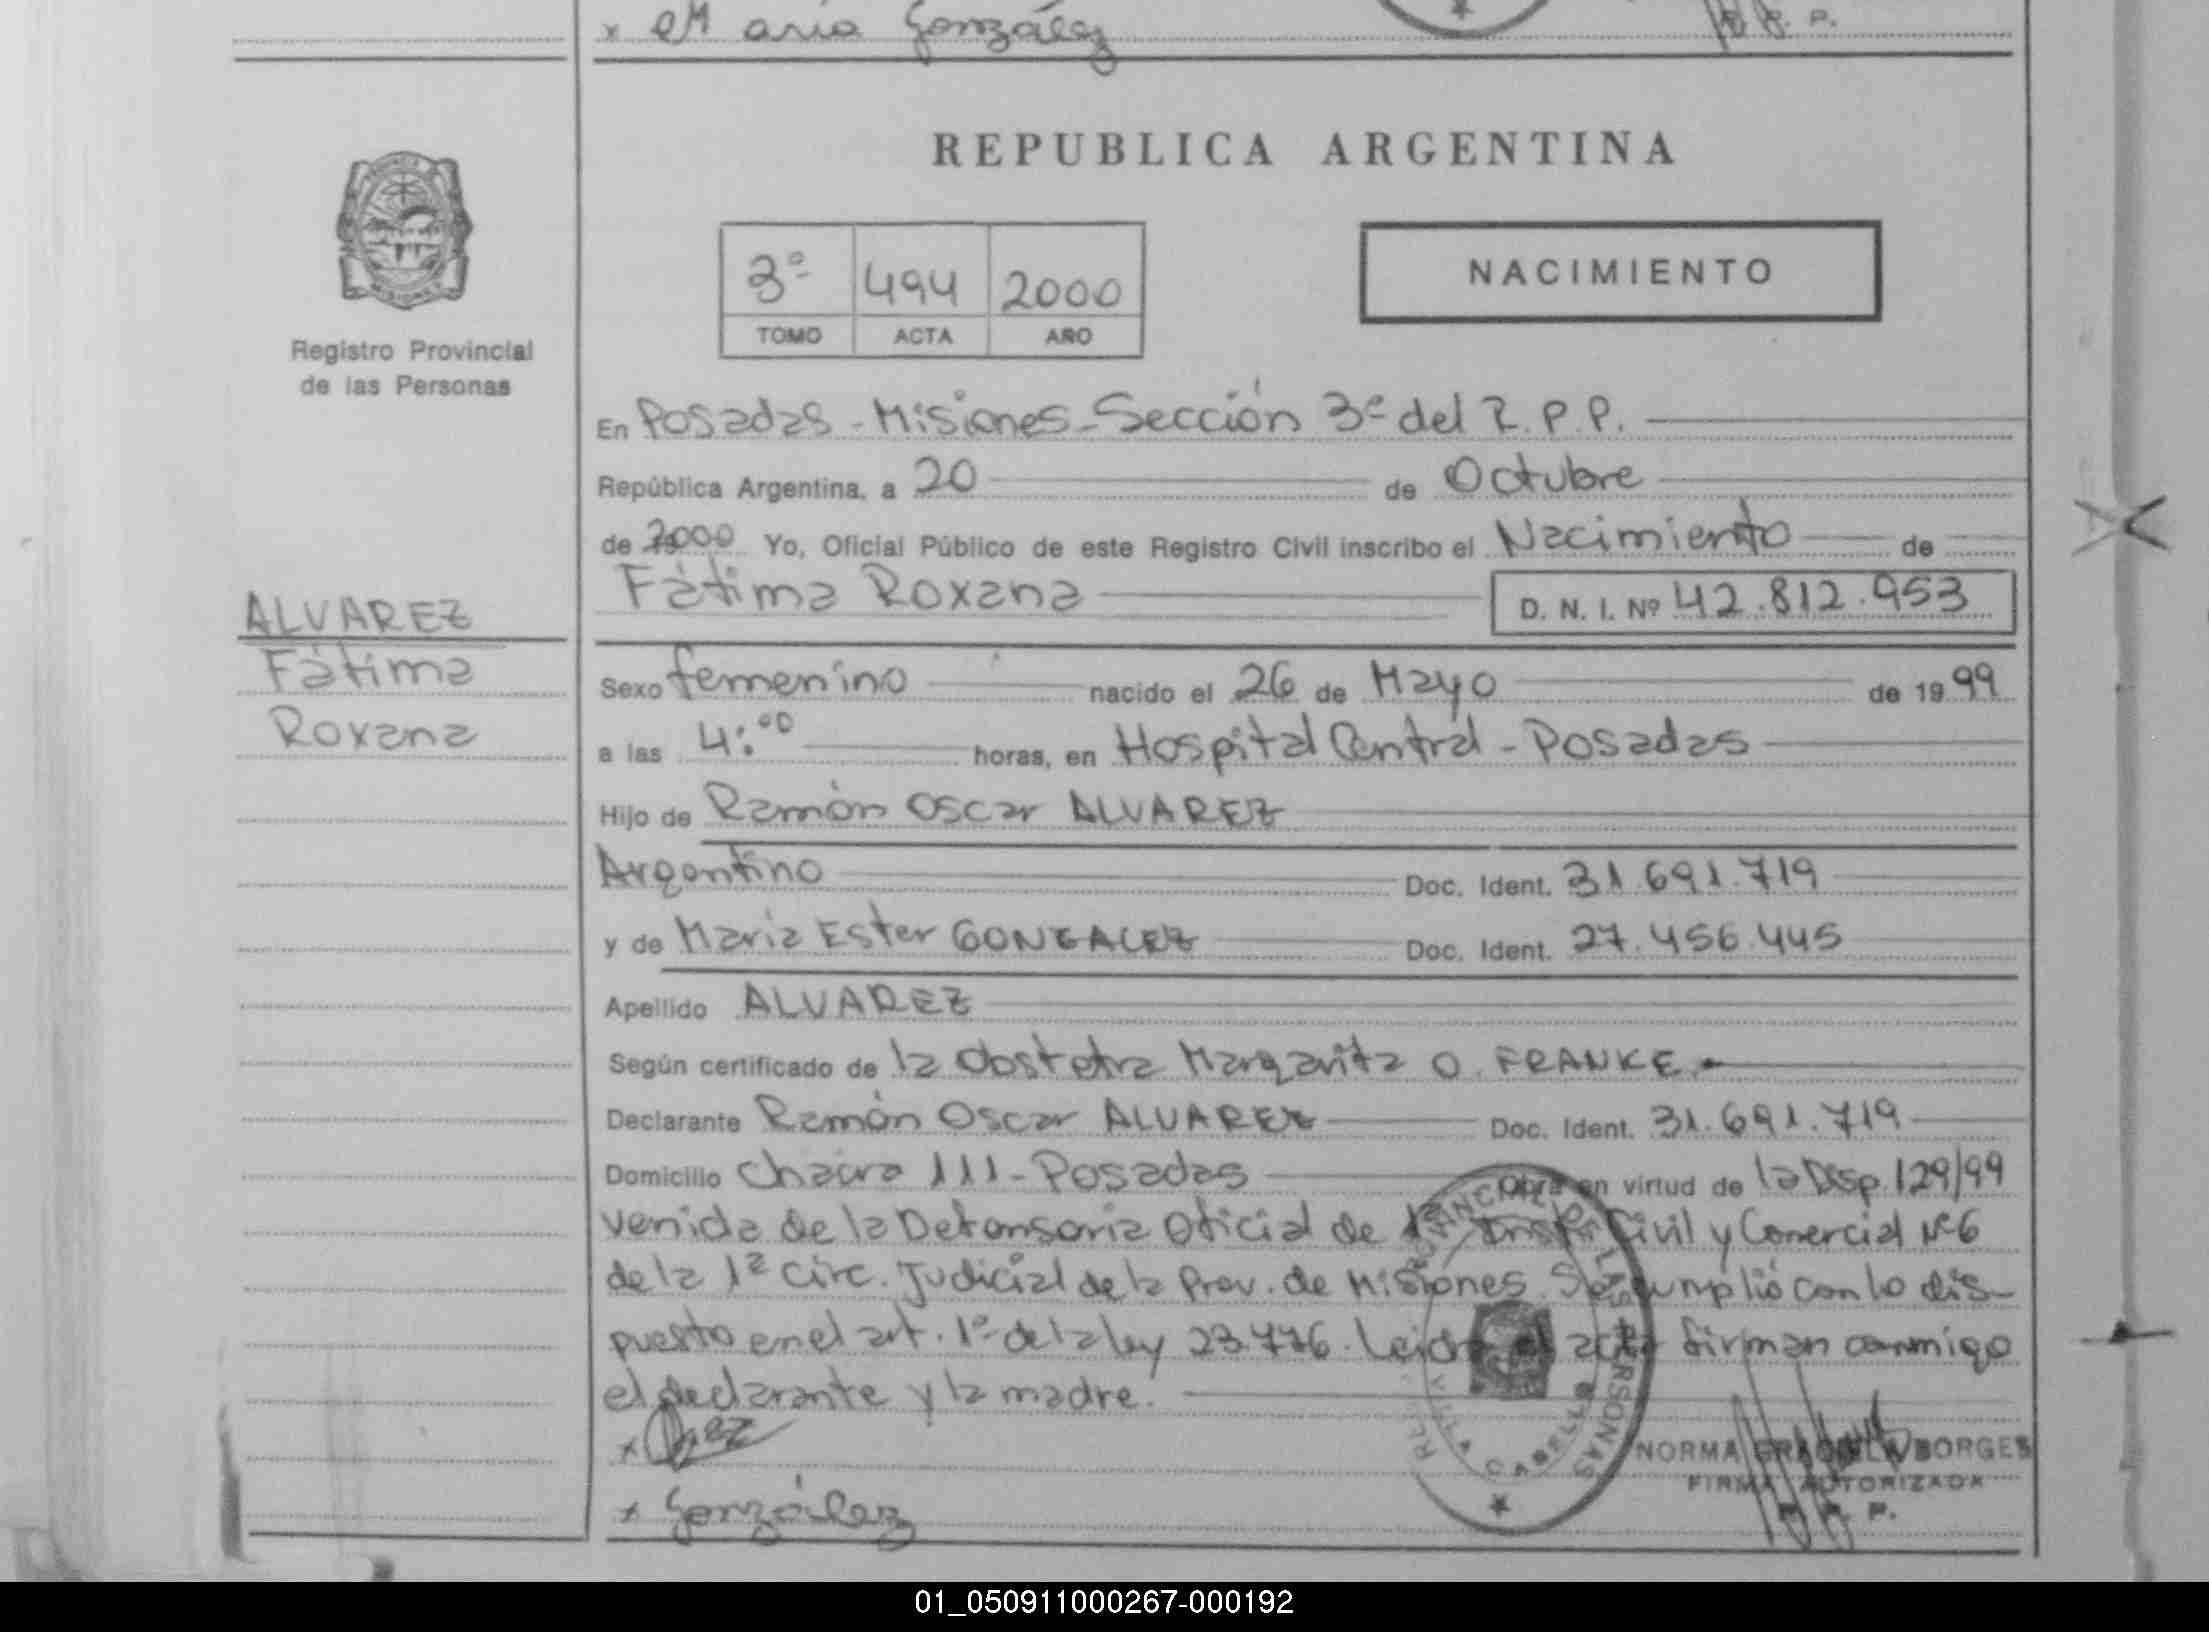 x Maria González
R. P.
REPUBLICA ARGENTINA
PROVINCIA
MISIONES
Registro Provincial
de las Personas
3º 494 2000
TOMO ACTA AÑO
NACIMIENTO
En Posadas - Misiones - Sección 3º del R.P.P.
República Argentina, a 20 de Octubre
de 2000 Yo, Oficial Público de este Registro Civil inscribo el Nacimiento de
Fátima Roxana D. N. I. Nº 42.812.953
ALVAREZ
Fátima
Roxana
Sexo femenino nacido el 26 de Mayo de 1999
a las 4:00 horas, en Hospital Central - Posadas
Hijo de Ramón Oscar ALVAREZ
Argentino Doc. Ident. 31.691.719
y de Maria Ester GONZALEZ Doc. Ident. 27.456.445
Apellido ALVAREZ
Según certificado de la Obstetra Margarita O. FRANKE.
Declarante Ramón Oscar ALVAREZ Doc. Ident. 31.691.719
Domicilio Chacra 111 - Posadas Obra en virtud de la Disp. 129/99
venida de la Defensoria Oficial de 1ª Inst. Civil y Comercial Nº 6
de la 1ª Circ. Judicial de la Prov. de Misiones. Se cumplió con lo dis-
puesto en el art. 1º de la ley 23.776. Leida el acta firman conmigo
el declarante y la madre.
x
x González
NORMA GRACIELA BORGES
FIRMA AUTORIZADA
R. P. P.
01_050911000267-000192